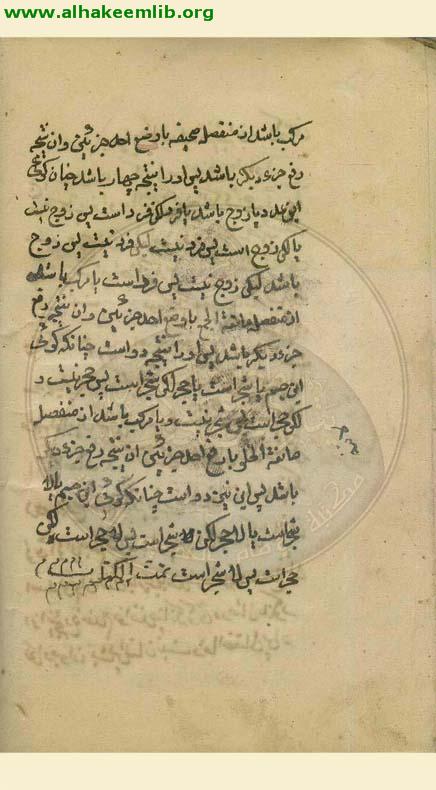 www.alhakeemlib.org
مرکب باشد از منفصله حقیقه با وضع احد جزئین و ان نتیجه
رفع جزء دیکر باشد پس او را نتیجه چهار باشد چنانکه کوئی
این عدد یا زوج باشد یا فرد لکن فرد است پس زوج نیست
یا لکن زوج است پس فرد نیست لیکن فرد نیست پس زوج
باشد لیکن زوج نیست پس فرد است یا مرکب باشد
از منفصله مانعة الجمع با وضع احد جزئین و ان نتیجه رفع
جزء دیکر باشد پس او را نتیجه دو است چنانکه کوئی
این جسم یا شجر است یا حجر لکن شجر است پس حجر نیست و
لکن حجر است پس شجر نیست و یا مرکب باشد از منفصله
مانعة الخلو با رفع احد جزئین ان نتیجه رفع جزء دیکر
باشد پس این نیز دو است چنانکه کوئی این جسم یا لا
شجر است یا لا حجر لکن شجر است پس لا حجر است لکن
حجر است پس لا شجر است تمت الکتاب